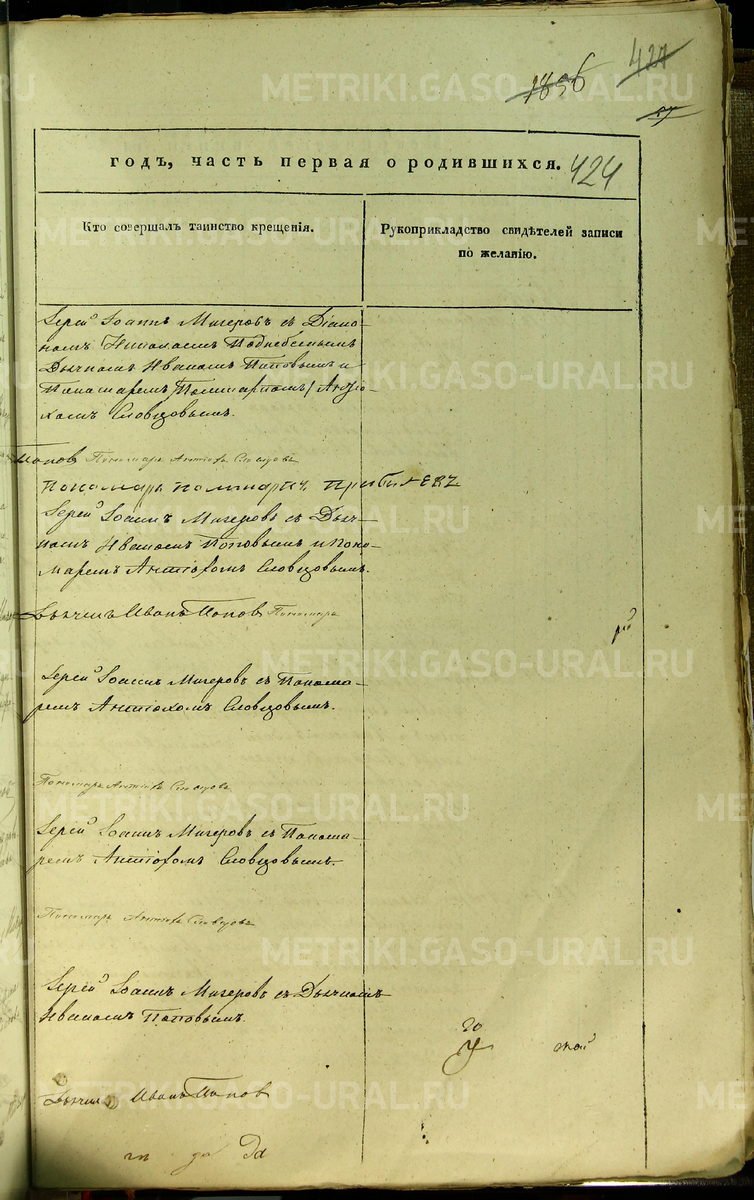 1856 427
57
годъ, часть первая о родившихся. 424
Кто совершалъ таинство крещенія.
Рукоприкладство свидѣтелей записи
по желанію.
Іерей Іоаннъ Мигеровъ съ Діако-
номъ Николаемъ Поднебеснымъ
Дьячкомъ Иваномъ Поповымъ и
Пономаремъ Антіо-
хомъ Словцовымъ.
Попов Пономарь Антіохъ Словцовъ
Пономарь Прибылевъ
Іерей Іоаннъ Мигеровъ съ Дьяч-
комъ Иваномъ Поповымъ и Поно-
маремъ Антіохомъ Словцовымъ.
Дьячекъ Иванъ Попов Пономарь
Іерей Іоаннъ Мигеровъ съ Понома-
ремъ Антіохомъ Словцовымъ.
Пономарь Антіохъ Словцовъ
Іерей Іоаннъ Мигеровъ съ Понома-
ремъ Антіохомъ Словцовымъ.
Пономарь Антіохъ Словцовъ
Іерей Іоаннъ Мигеровъ съ Дьячкомъ
Иваномъ Поповымъ.
Иванъ Попов
METRIKI.GASO-URAL.RU